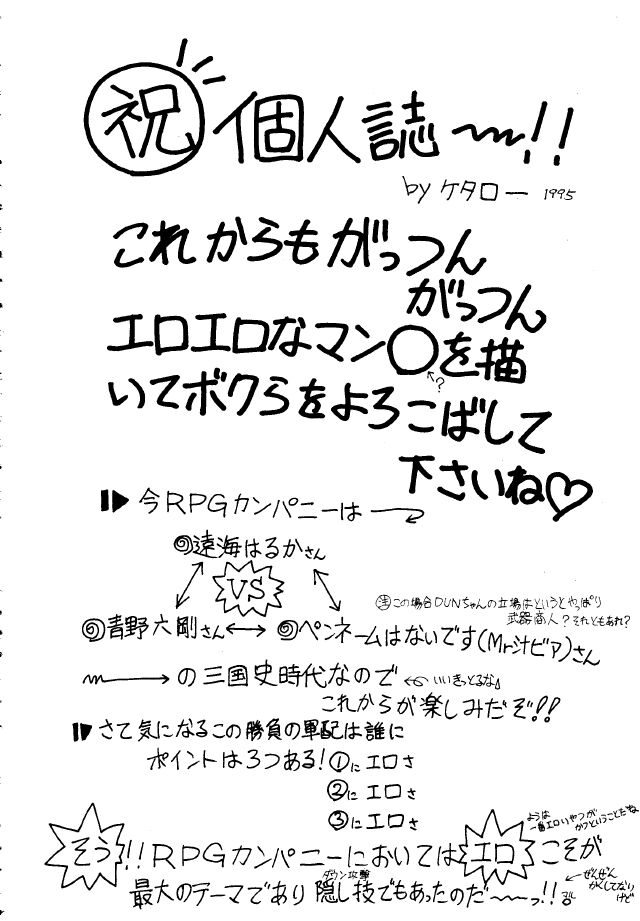 祝 個人誌〜!!
by ケタロー 1995
これからもがっつん
がっつん
エロエロなマン○を描
?
いてボクらをよろこばして
下さいね♡
今RPGカンパニーは
遠海はるかさん
VS
注 この場合DUNちゃんの立場はというとやっぱり
武器商人?それともあれ?
青野六剛さん↔ペンネームはないです(Mr汁ビア)さん
→の三国史時代なので ←いいきっとるな。
これからが楽しみだぞ!!
さて気になるこの勝負の軍配は誰に
ポイントは3つある!①にエロさ
②にエロさ
③にエロさ
ようは
一番エロいやつが
かつということだね
そう!!RPGカンパニーにおいてはエロこそが
ダウン攻撃
最大のテーマであり隠し技でもあったのだ〜っ!!
←ぜんぜん
かくしてない
けど